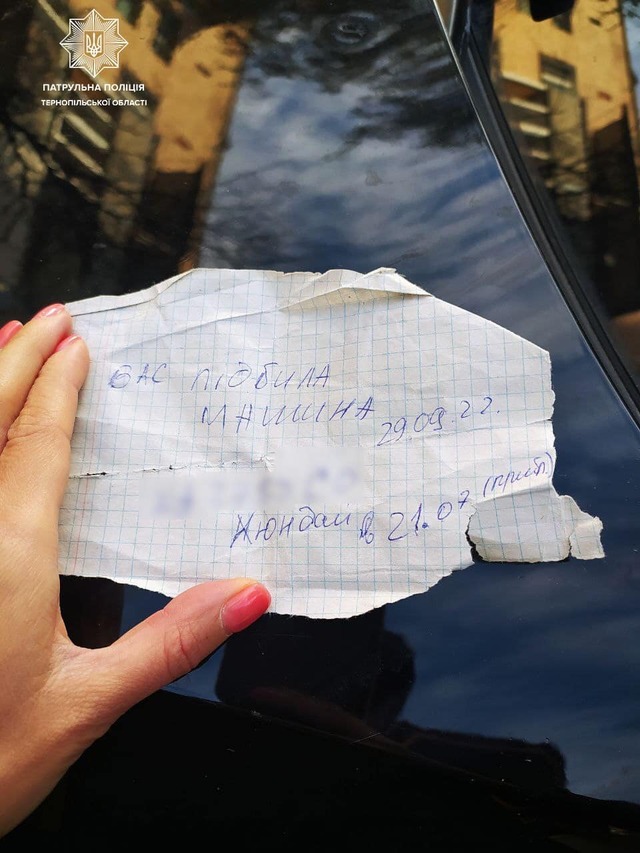 ПАТРУЛЬНА ПОЛІЦІЯ
ТЕРНОПІЛЬСЬКОЇ ОБЛАСТІ
ВАС ПІДБИЛА
МАШИНА 29.09.22.
Хюндаи в 21.07 (прибл)